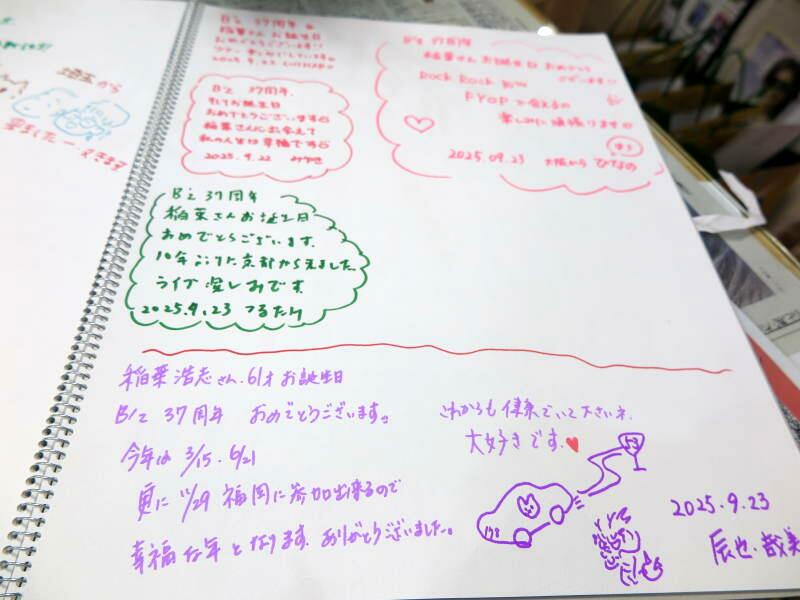 埼玉から
B'z 37周年
稲葉さん お誕生日
おめでとうございます!!
2025.9.22
B'z 37周年.
そしてお誕生日
おめでとうございます
稲葉さんに出会えて
私の人生は幸福です
2025.9.22
B'z 37周年
稲葉さん お誕生日 おめでとう
ございます!!
Rock Rock
FYOPで会えるの
楽しみに頑張ります
2025.09.23 大阪から ひなの
B'z 37周年
稲葉さんお誕生日
おめでとうございます.
10年ぶりに京都からきました.
ライブ楽しみです.
2025.9.23 つるたけ
稲葉浩志さん.61才 お誕生日
B'z 37周年 おめでとうございます。
今年は 3/15.6/21
更に 11/29 福岡に参加出来るので
幸福な年となります.ありがとうございました。
これからも健康でいて下さいネ.
大好きです.♥
2025.9.23
辰也・哉美